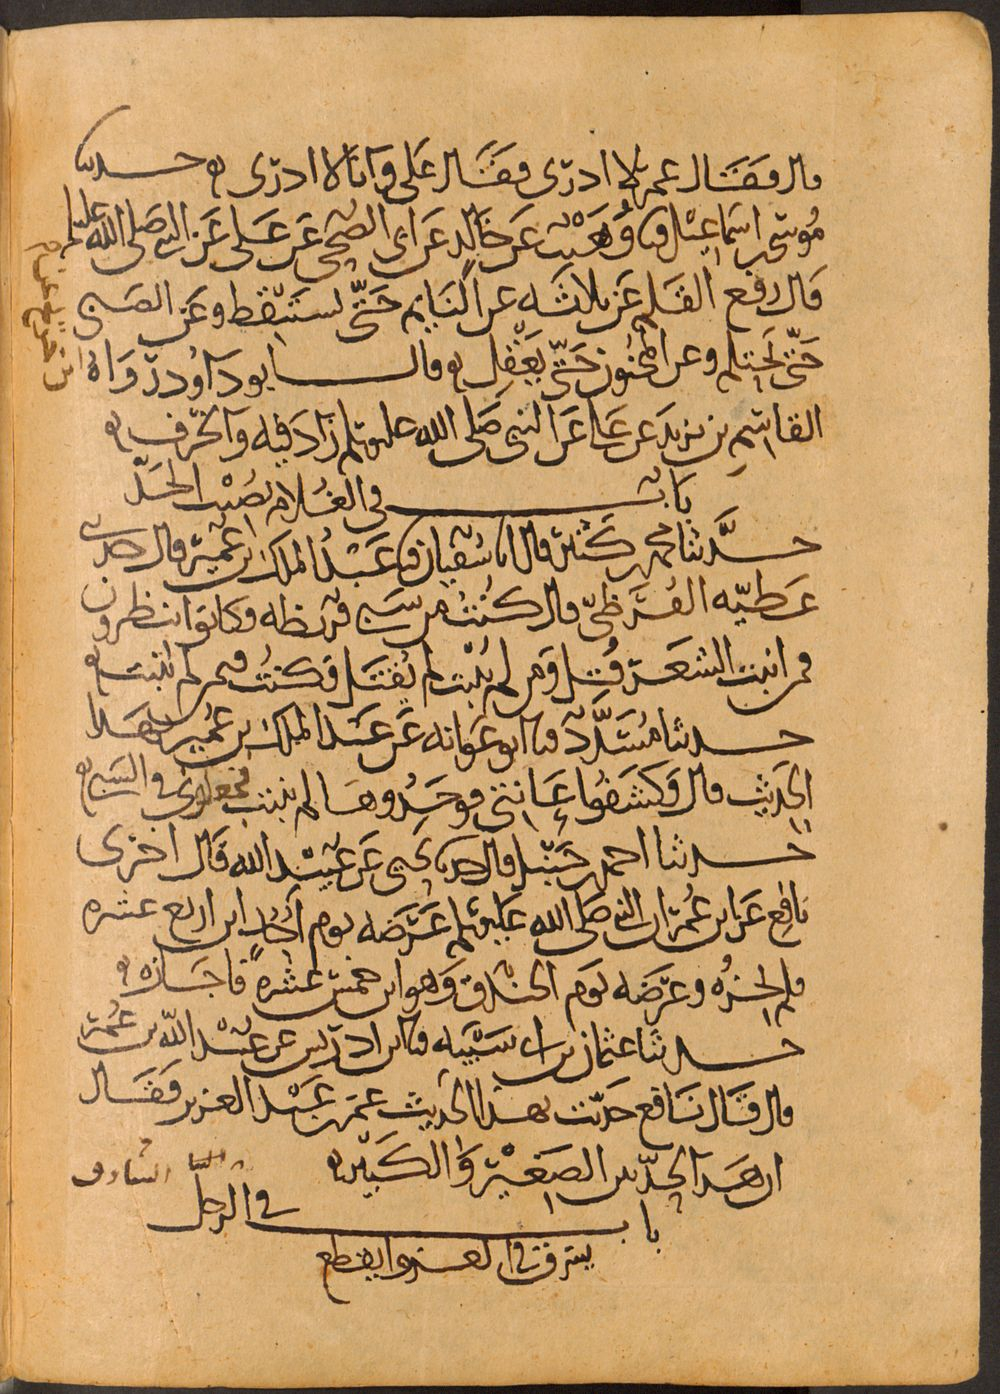 قال فقال عمر لا ادرى فقال على وانا لا ادرى ه حدثنا
موسى بن اسماعيل نا وهيب عن خالد عن ابى الضحى عن على عن النبى صلى الله عليه وسلم
قال رفع القلم عن ثلاثه عن النايم حتى يستيقظ وعن الصبى
حتى يحتلم وعن المجنون حتى يعقل ه قال ابو داود رواه ابن جريج عن
القاسم بن يزيد عن على عن النبى صلى الله عليه وسلم زاد فيه والخرف ه
باب فى الغلام يصيب الحد
حدثنا محمد بن كثير قال انا سفيان نا عبد الملك بن عمير قال حدثنى
عطيه القرظى قال كنت من سبى قريظه فكانوا ينظرون
فمن انبت الشعر قتل ومن لم ينبت لم يقتل فكنت فيمن لم ينبت ه
حدثنا مسدد نا ابو عوانه عن عبد الملك بن عمير بهذا
الحديث قال وكشفوا عانتى فوجدوها لم تنبت فجعلونى فى السبى ه
حدثنا احمد بن حنبل قال حدثنا يحيى عن عبيد الله قال اخبرنى
نافع عن ابن عمر ان النبى صلى الله عليه وسلم عرضه يوم احد ابن اربع عشره
فلم يجزه وعرضه يوم الخندق وهو ابن خمس عشرة فاجازه ه
حدثنا عثمان بن ابى شيبه نا ابن ادريس عن عبيد الله بن عمر
قال قال نافع حدثت بهذا الحديث عمر بن عبد العزيز فقال
ان هذا الحد بين الصغير والكبير ه
باب فى الرجل
يسرق فى الغزو ايقطع